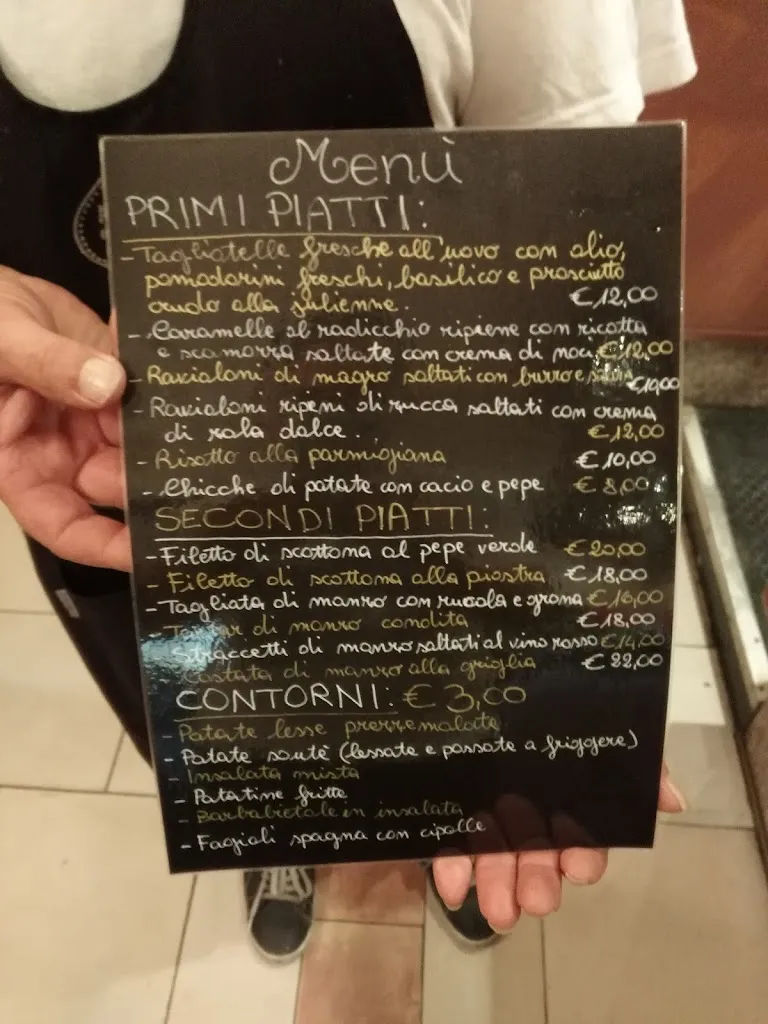 Menù
PRIMI PIATTI:
- Tagliatelle fresche all'uovo con olio,
pomodorini freschi, basilico e prosciutto
crudo alla julienne. € 12,00
- Caramelle al radicchio ripiene con ricotta
e scamorza saltate con crema di noci € 12,00
- Ravioloni di magro saltati con burro e
- Ravioloni ripeni di zucca saltati con crema
di zola dolce. € 12,00
- Risotto alla parmigiana € 10,00
- Chicche di patate con cacio e pepe € 8,00
SECONDI PIATTI:
- Filetto di scottona al pepe verde € 20,00
- Filetto di scottona alla piastra € 18,00
- Tagliata di manzo con rucola e grana € 16,00
di manzo condita € 18,00
- Straccetti di manzo saltati al vino rosso € 14,00
Costata di manzo alla griglia € 22,00
CONTORNI: € 3,00
- Patate lesse prezzemolate
- Patate sautè (lessate e passate a friggere)
- Insalata mista
- Patatine fritte
- Barbabietole in insalata
- Fagioli spagna con cipolle